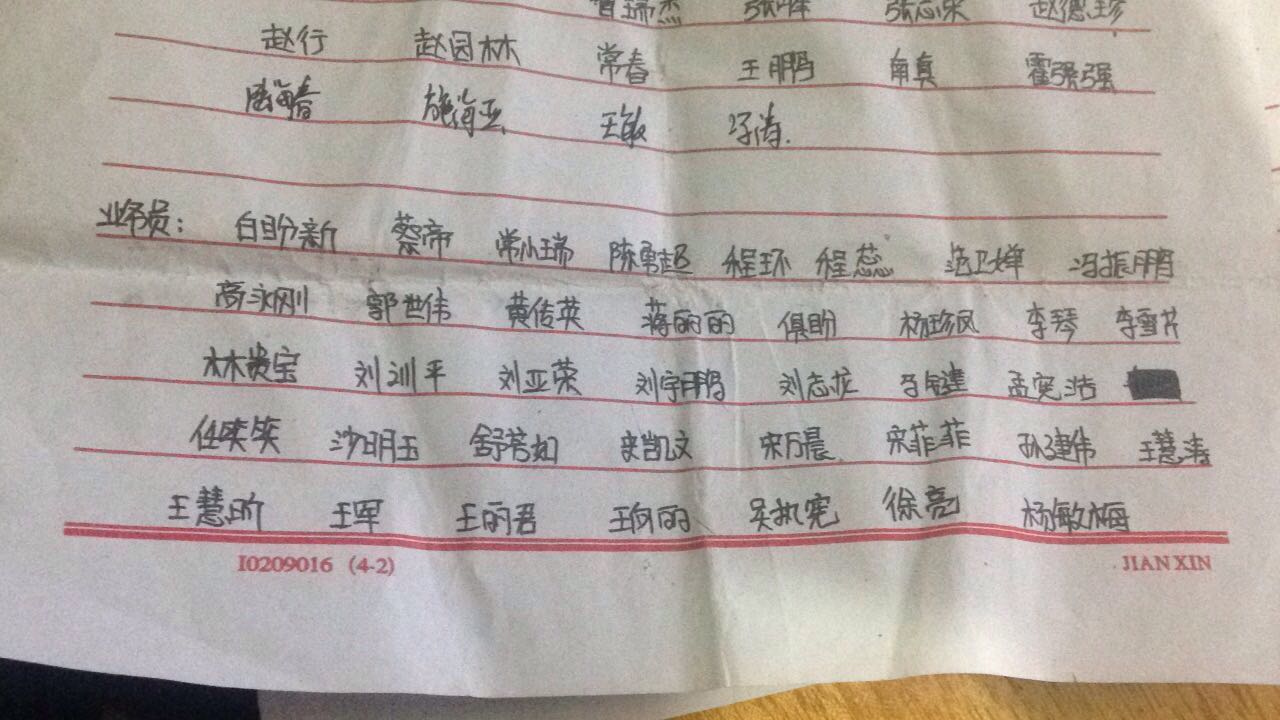 曹瑞杰 张峰 张志荣 赵德珍
赵行 赵园林 常春 王鹏 甪真 霍强强
陆海春 施海亚 王敏 冯涛.
业务员: 白盼新 蔡帝 常小瑞 陈勇超 程环 程蕊 范卫婵 冯振鹏
高永刚 郭世伟 黄传英 蒋丽丽 俱盼 杨珍凤 李琴 李雪芹
林贵宝 刘训平 刘亚荣 刘宇鹏 刘志龙 马健 孟宪浩
任笑笑 沙明玉 舒芳如 史凯文 宋万晨 宋菲菲 孙建伟 王慧涛
王慧昕 王军 王丽君 王向丽 吴执宪 徐亮 杨敏梅
I0209016 (4-2) JIANXIN